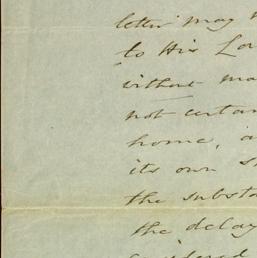 letter may
to His Lor
without ma
not certain
home, a
its own s
the substa
the delay